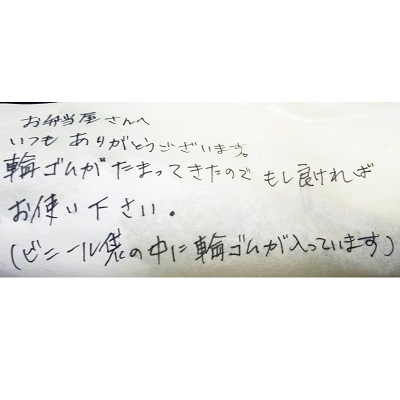 お弁当屋さんへ
いつも ありがとうございます。
輪ゴムが たまってきたので もし良ければ
お使い下さい。
(ビニール袋の中に輪ゴムが入っています)